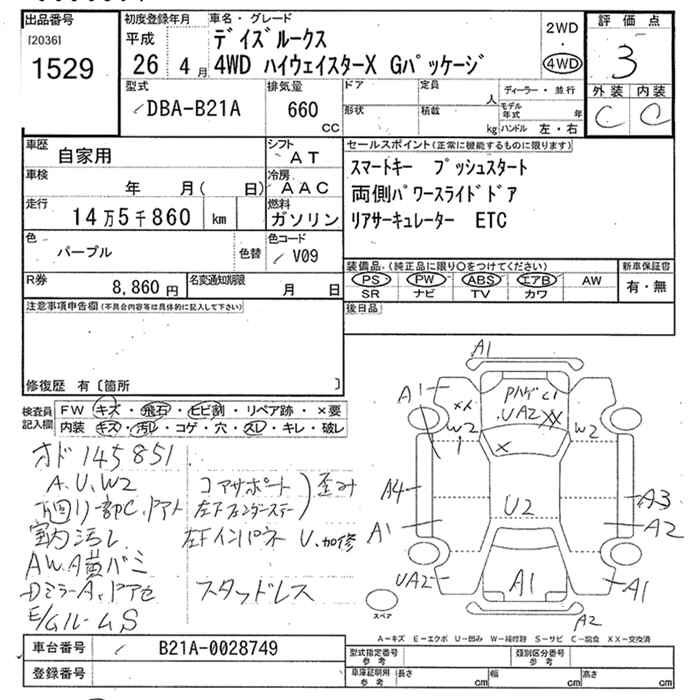 出品番号
[2036]
1529
初度登録年月
平成
26 4月
車名・グレード
デイズルークス
4WD ハイウェイスターX Gパッケージ
2WD
・
4WD
評価点
3
外装 内装
C C
型式
DBA-B21A
排気量
660
CC
ドア 定員
人
形状 積載
kg
ディーラー・並行
モデル年式 年
ハンドル 左・右
車歴
自家用
シフト
AT
車検
年 月( 日)
冷房
AAC
走行
14万5千860 km
燃料
ガソリン
色
パープル
色替
色コード
V09
R券
8,860円
名変通知期限
月 日
セールスポイント(正常に機能するものに限ります)
スマートキー プッシュスタート
両側パワースライドドア
リアサーキュレーター ETC
装備品(純正品に限り○をつけてください)
PS・PW・ABS・エアB・AW
SR ナビ TV カワ
新車保証書
有・無
後日品
注意事項申告欄(不具合内容等は具体的に記入して下さい)
修復歴 有〔箇所 〕
検査員記入欄
FW キズ・飛石・ヒビ割・リペア跡・×要
内装 キズ・汚レ・コゲ・穴・スレ・キレ・破レ
オド145851
A.U.W2
下回リ一部C.
室内汚レ
コアサポート
左下
歪み
左下インパネ U.加修
スタッドレス
A1
A1
XX
W2
UA2
XX
X
W2
A4
A1
U2
A3
A2
UA2
A1
A1
A2
スペア
A-キズ E-エクボ U-凹み W-補修跡 S-サビ C-腐食 XX-交換済
車台番号
B21A-0028749
登録番号
型式指定番号 参考
類別区分番号 参考
車庫証明用 参考
長さ cm 幅 cm 高さ cm